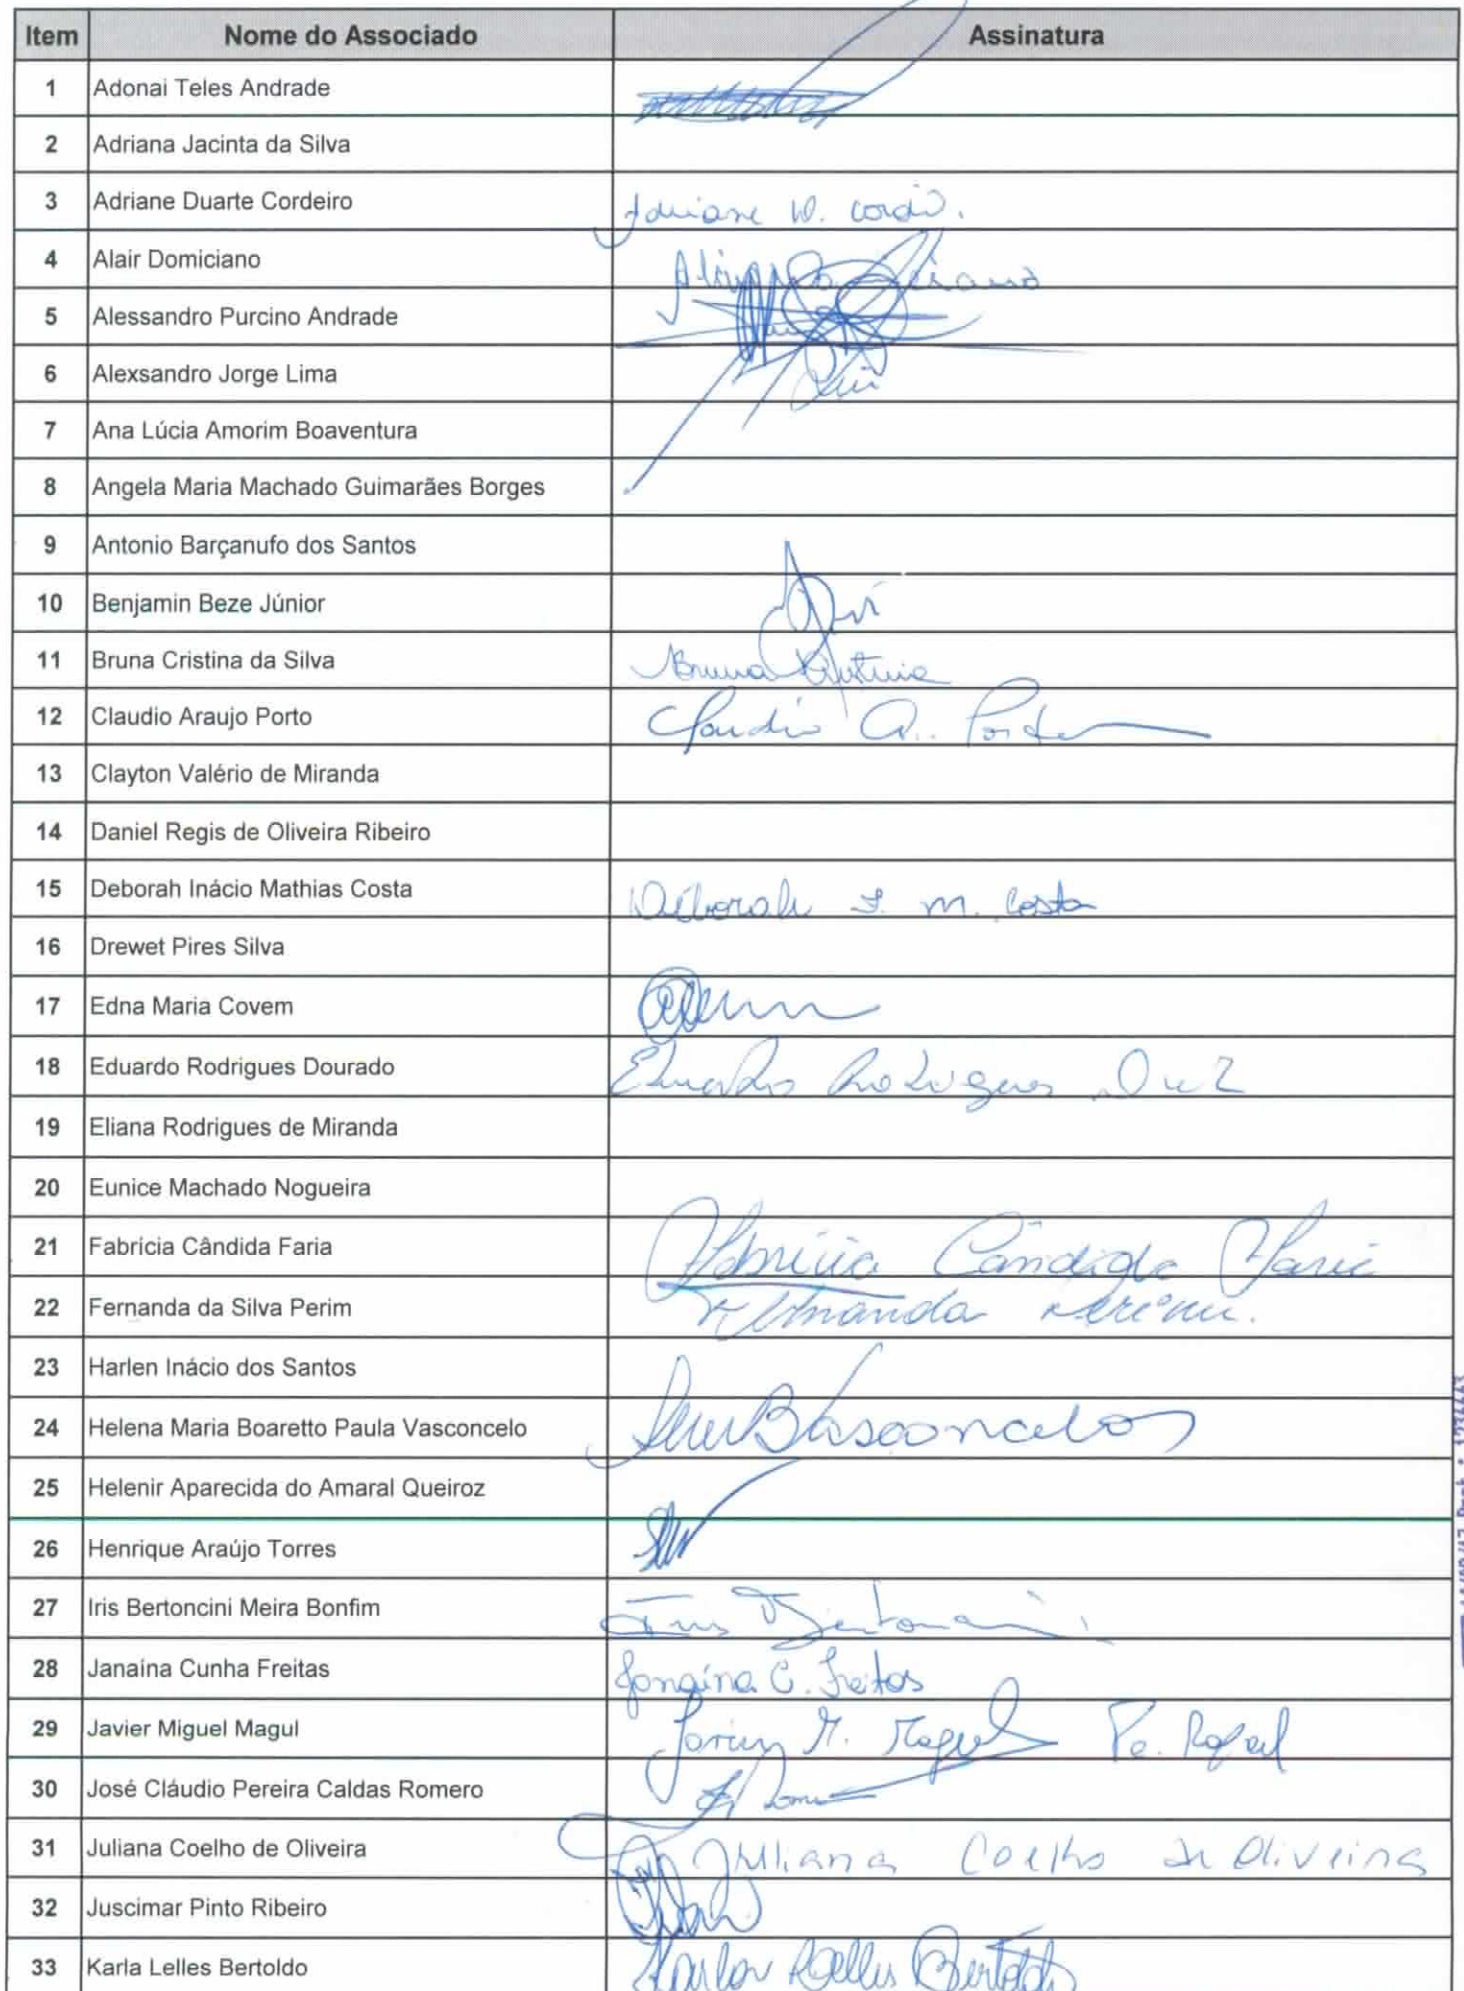 Item Nome do Associado Assinatura
1 Adonai Teles Andrade
2 Adriana Jacinta da Silva
3 Adriane Duarte Cordeiro
4 Alair Domiciano
5 Alessandro Purcino Andrade
6 Alexsandro Jorge Lima
7 Ana Lúcia Amorim Boaventura
8 Angela Maria Machado Guimarães Borges
9 Antonio Barçanufo dos Santos
10 Benjamin Beze Júnior
11 Bruna Cristina da Silva Bruna Cristina
12 Claudio Araujo Porto Claudio A. Porto
13 Clayton Valério de Miranda
14 Daniel Regis de Oliveira Ribeiro
15 Deborah Inácio Mathias Costa Déborah I. M. Costa
16 Drewet Pires Silva
17 Edna Maria Covem
18 Eduardo Rodrigues Dourado Eduardo Rodrigues
19 Eliana Rodrigues de Miranda
20 Eunice Machado Nogueira
21 Fabrícia Cândida Faria Fabrícia Cândida Faria
22 Fernanda da Silva Perim Fernanda Perim.
23 Harlen Inácio dos Santos
24 Helena Maria Boaretto Paula Vasconcelo Vasconcelos
25 Helenir Aparecida do Amaral Queiroz
26 Henrique Araújo Torres
27 Iris Bertoncini Meira Bonfim Iris Bertoncini
28 Janaína Cunha Freitas Janaína C. Freitas
29 Javier Miguel Magul Javier M. Magul Pe. Rafael
30 José Cláudio Pereira Caldas Romero
31 Juliana Coelho de Oliveira Juliana Coelho de Oliveira
32 Juscimar Pinto Ribeiro
33 Karla Lelles Bertoldo Karla Lelles Bertoldo